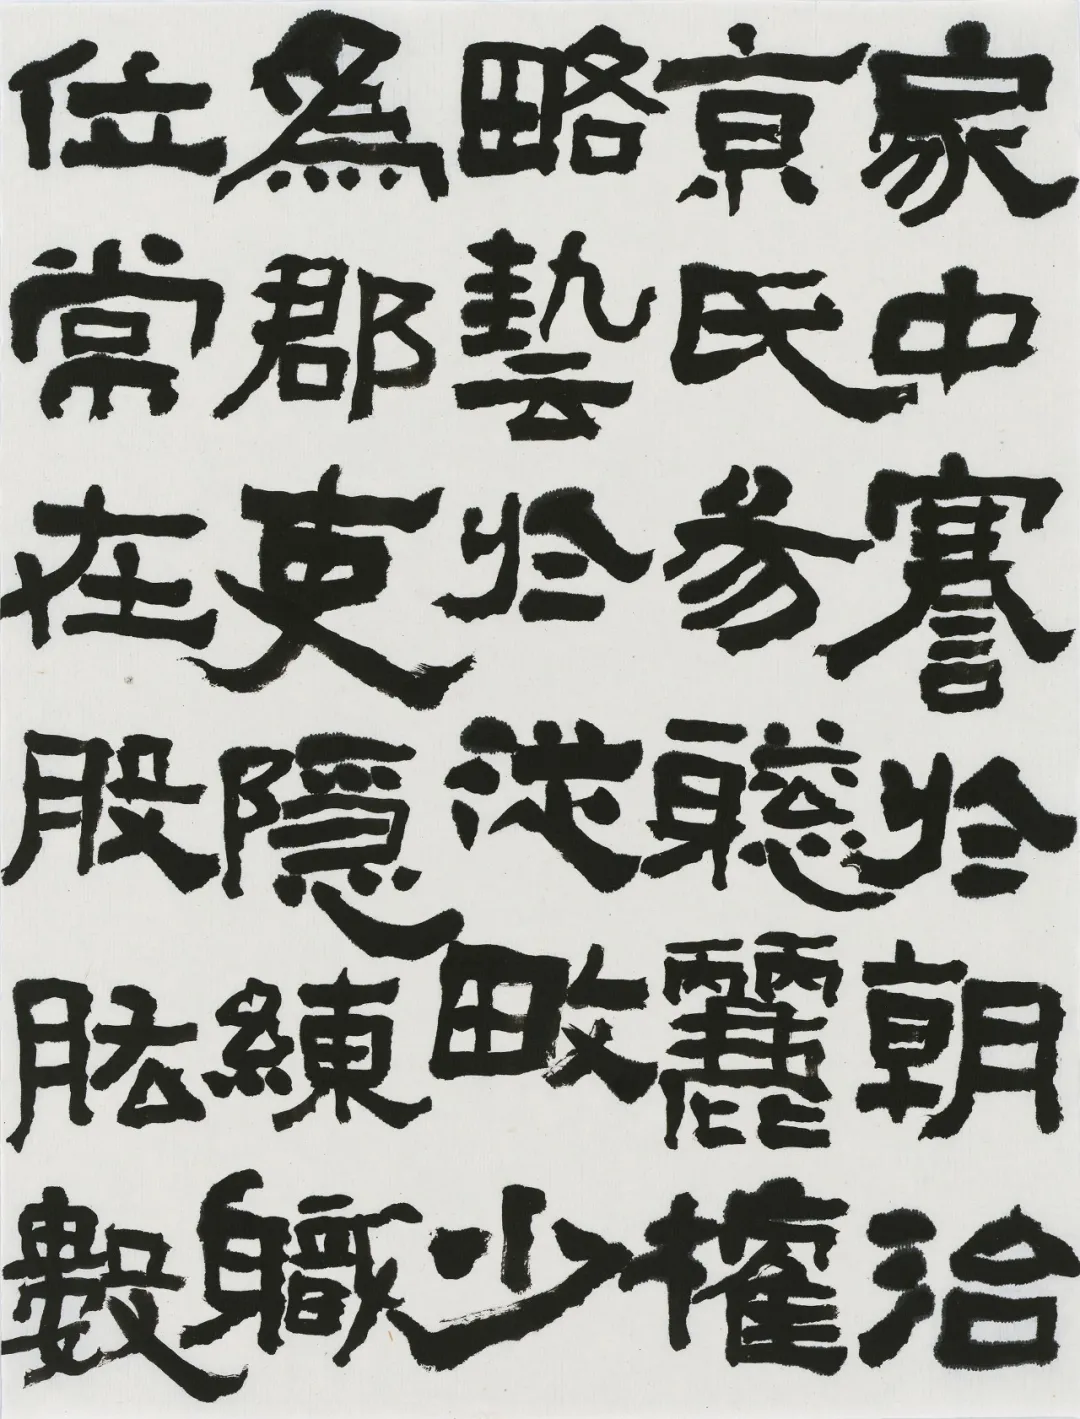 家中謇於朝治
京氏易聰麗權
略藝於從畋少
為郡吏隱練職
位常在股肱數